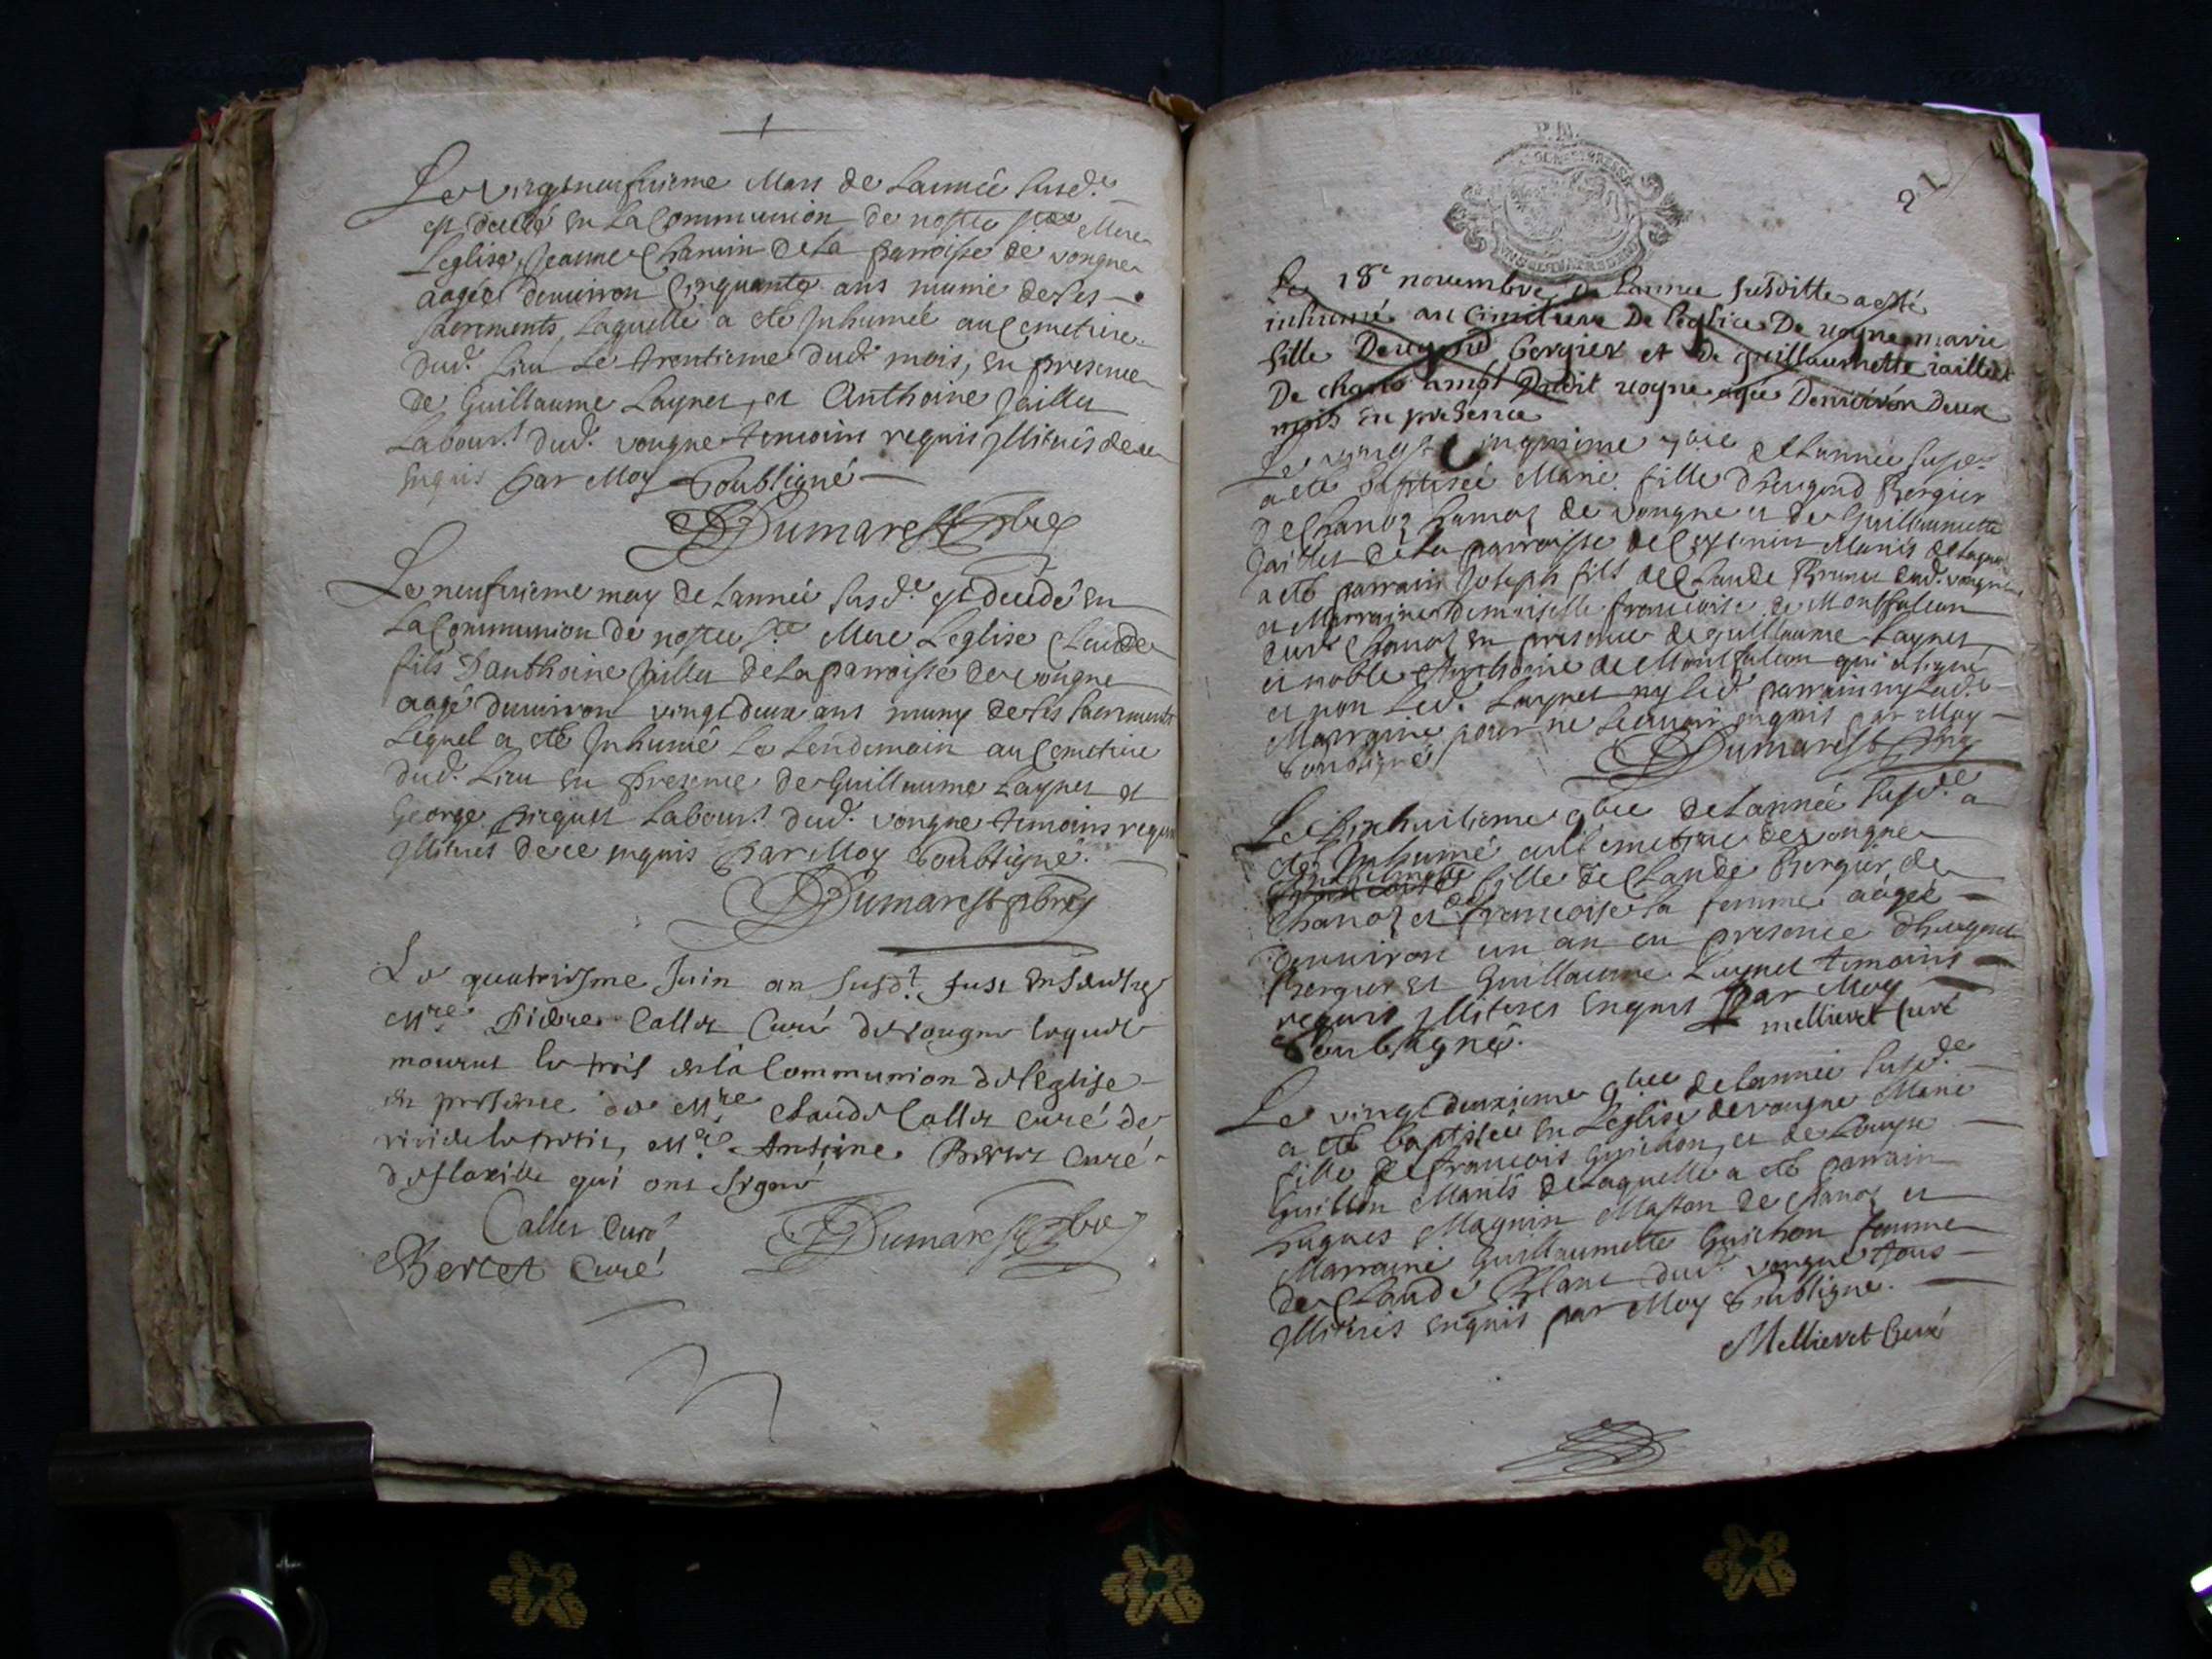 Le vingtneufvieme Mars de Lannée susd.e
est decedé en La Communion de nostre s.te Mere
Leglise, Jeanne Charvin de La parroisse de vongne
aagée denviron Cinquante ans munie de ses
sacrements, Laquelle a eté Inhumée au Cemetiere
dud. Lieu Le trentieme dud. mois, en presence
de Guillaume Laynet, et Anthoine Jaillet
Labour.s dud. vongne temoins requis Illiterés de ce
enquis par Moy soubsigné
Dumarest pbre
Le neufvieme may de Lannée susd.e est decedé en
La Communion de nostre s.te Mere Leglise Claude
fils Danthoine Jaillet de La parroisse de vongne
aagé denviron vingt deux ans muny de ses sacrements
Lequel a eté Inhumé Le Lendemain au Cemetiere
dud. Lieu en presence de Guillaume Laynet et
George Labour.s dud. vongne temoins requis
Illiterés de ce enquis par Moy soubsigné.
Dumarest pbre
Le quatriesme Juin an susd.t fust enseveli
M.re Pierre Callet Curé de vongne lequel
mourut le trois en la Communion de l'église
en presence de M.re Claude Callet curé de
M.re Antoine Bertet curé
de qui ont signé
Callet curé Dumarest pbre
Bertet curé
21
Le 18e novembre de Lannee susditte a esté
inhumé au Cimitiere De leglise De vogne marie
fille De ugond bergier et de guillaumette iaillet
De chano Dudit vogne agée Denviron Deux
mois en presence
Le vingt 7bre de Lannée susd.
a eté baptisée Marie fille dheugond Bergier
de Chanoz hamoz de vongne et de Guillaumette
Jaillet de La parroisse de Mariés de Laquelle
a eté parrain Joseph fils de Claude Brunet dud. vongne
et Marraine demoiselle francoise de Montfalcon
dud. Chanoz en presence de guillaume Laynet
et noble Anthoine de Montfalcon qui a signé
et non Led. Laynet ny Led. parrain ny Lad.
Marraine pour ne scavoir enquis par Moy
soubsigné Dumarest pbre
Le dixhuitieme 9bre de Lannée susd.e a
eté Inhumé au Cemetiere de vongne
fille de Claude Bergier de
Chanoz et de francoise sa femme aagée
denviron un an en presence dheugond
Bergier et Guillaume Laynet temoins
requis Illiterés enquis par Moy
soubsigné. mellieret curé
Le vingt deuxieme 9bre de Lannée susd.e
a eté baptisée en Leglise de vongne Marie
fille de francois Guichon, et de Louyse
Guillon Mariés de Laquelle a eté parrain
hugues Magnin Masson de Chanoz et
Marraine Guillaumette Guichon femme
de Claude Blanc dud. vongne tous
Illiterés enquis par Moy soubsigné.
Mellieret Curé